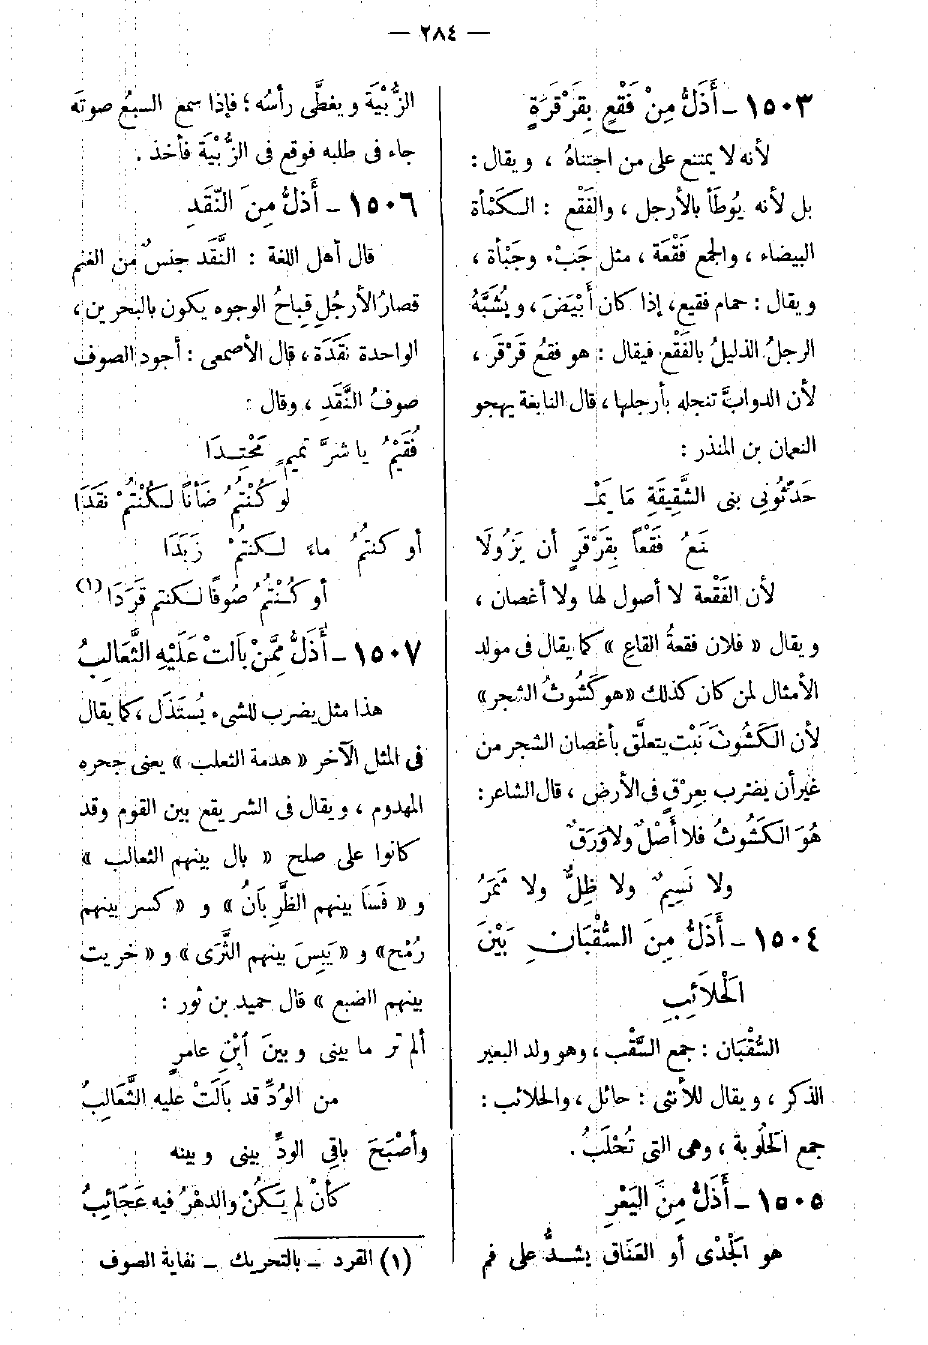 — ٢٨٤ —
١٥٠٣ – أَذَلُّ مِنْ فَقْعٍ بِقَرْقَرَةٍ
لأنه لا يمتنع على من اجتناهُ ، ويقال :
بل لأنه يُوطَأ بالأرجل ، والفَقْع : الكَمْأة
البيضاء ، والجمع فَقْعَة ، مثل جَبْء وجَبْأة ،
ويقال : حمام فقيع، إذا كان أَبْيَضَ ، ويُشَبَّهُ
الرجلُ الذليلُ بالفَقْع فيقال : هو فقعُ قَرْقَر ،
لأن الدوابَّ تنجله بأرجلها ، قال النابغة يهجو
النعمان بن المنذر :
حَدِّثُونِى بنى الشَّقِيقَةِ مَا يَمْـ
ـنَعُ فَقْعاً بِقَرْقَرٍ أن يَزُولَا
لأن الفَقْعة لا أصول لها ولا أغصان ،
ويقال « فلان فقعةُ القاع » كما يقال فى مولد
الأمثال لمن كان كذلك «هو كَشُوثُ الشجر»
لأن الكَشُوثَ نَبْت يتعلَّق بأغصان الشجر من
غير أن يضرب بِعِرْقٍ فى الأرض ، قال الشاعر :
هُوَ الكَشُوثُ فلا أَصْلٌ ولا وَرَقٌ
ولا نَسِيمٌ ولا ظِلٌّ ولا ثَمَرُ
١٥٠٤ – أَذَلُّ مِنَ السُّقْبَانِ بَيْنَ
الحَلاَئِبِ
السُّقْبَان : جمع السَّقْب ، وهو ولد البعير
الذكر ، ويقال للأنثى : حائل ، والحلائب :
جمع الحَلُوبة ، وهى التى تُحْلَبُ .
١٥٠٥ – أَذَلُّ مِنَ اليَعْرِ
هو الجَدْى أو العَنَاق يشدُّ على فم
الزُّبْيَة ويغطَّى رأسُه ؛ فإذا سمع السبعُ صوتَه
جاء فى طلبه فوقع فى الزُّبْيَة فأخذ .
١٥٠٦ – أَذَلُّ مِنَ النَّقَدِ
قال أهل اللغة : النَّقَد جنسٌ من الغنم
قصارُ الأرجُلِ قِباحُ الوجوه يكون بالبحرين ،
الواحدة نَقَدَة ، قال الأصمعى : أجود الصوف
صوفُ النَّقَدِ ، وقال :
فُقَيْمُ يا شرَّ تميمٍ مَحْتِدَا
لو كُنْتُمُ ضَأْناً لَكُنْتُمْ نَقَدَا
أو كنتُمُ ماء لكنتُمْ زَبَدَا
أو كُنْتُمُ صُوفًا لَكنتم قَرَدَا (١)
١٥٠٧ – أَذَلُّ مِمَّنْ بَالَتْ عَلَيْهِ الثَّعَالِبُ
هذا مثل يضرب للشىء يُسْتَذَل ، كما يقال
فى المثل الآخر « هدمة الثعلب » يعنى جحره
المهدوم ، ويقال فى الشر يقع بين القوم وقد
كانوا على صلح « بال بينهم الثعالب »
و « فَسَا بينهم الظَّرِبَانُ » و « كسر بينهم
رُمْح» و « يَبِسَ بينهم الثَّرَى » و « خريت
بينهم الضبع » قال حميد بن ثور :
ألم تر ما بينى وبينَ أبْنِ عامرٍ
من الوُدِّ قد بَالَتْ عليه الثَّعَالِبُ
وأصْبَحَ باقِى الودِّ بينى وبينه
كأنْ لم يَكُنْ والدهْرُ فيه عَجَائِبُ
(١) القرد – بالتحريك – نفاية الصوف